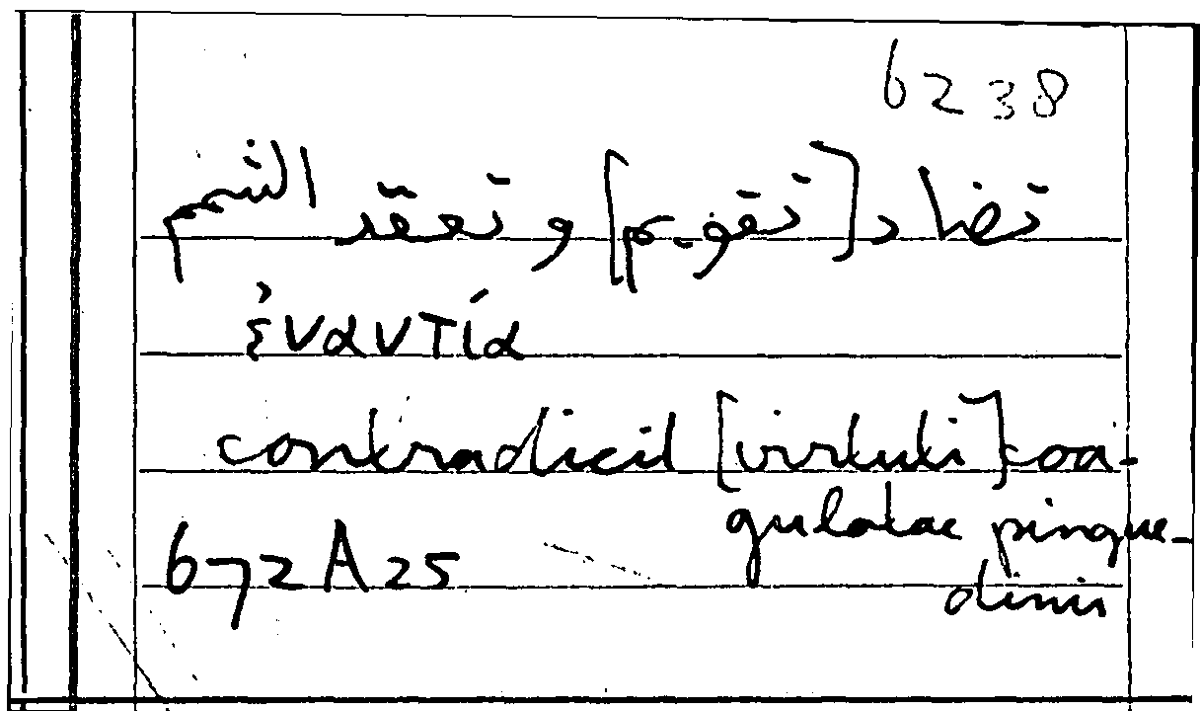 6238
تضاد [تقويم] و تعقد الشحم
ἐναντία
contradicit [virtuti] coa-
gulatae pingue-
672 A 25
dinis